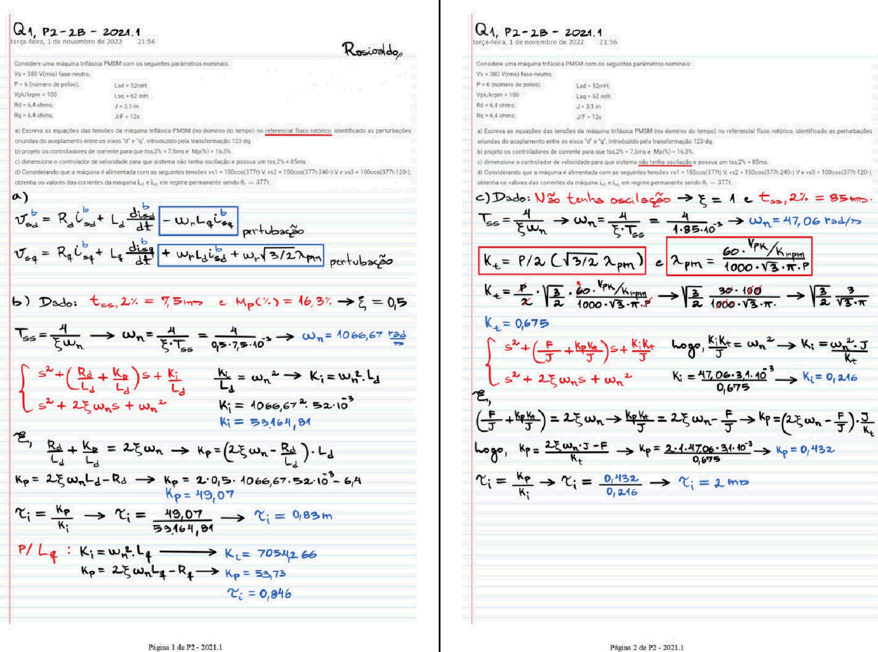 Q1, P2-2B - 2021.1
terça-feira, 1 de novembro de 2022 21:56
Rosivaldo
Considere uma máquina trifásica PMSM com os seguintes parâmetros nominais:
Vs = 380 V(rms) fase-neutro,
P = 6 (número de polos), Lsd = 52mH,
Vpk/krpm = 100 Lsq = 62 mH.
Rd = 6,4 ohms; J = 3,1 m
Rq = 6,4 ohms; J/F = 12s
a) Escreva as equações das tensões da máquina trifásica PMSM (no domínio do tempo) no referencial fluxo rotórico, identificado as perturbações
oriundas do acoplamento entre os eixos "d" e "q", introduzido pela transformação 123-dq.
b) projeto os controladores de corrente para que tss,2% = 7,5ms e Mp(%) = 16,3%.
c) dimensione o controlador de velocidade para que sistema não tenha oscilação e possua um tss,2% = 85ms.
d) Considerando que a máquina é alimentada com as seguintes tensões vs1 = 150cos(377t) V, vs2 = 150cos(377t-240◦) V e vs3 = 100cos(377t-120◦),
obtenha os valores das correntes da máquina
em regime permanente sendo θr = 377t.
a)
v_sd^b = R_d i_sd^b + L_d di_sd/dt - ω_r L_q i_sq^b pertubação
v_sq^b = R_q i_sq^b + L_q di_sq^b/dt + ω_r L_d i_sd^b + ω_r √3/2 λ_pm pertubação
b) Dado: t_ss,2% = 7,5ms e Mp(%) = 16,3% → ξ = 0,5
T_ss = 4/ξω_n → ω_n = 4/ξ·T_ss = 4/0,5·7,5·10^-3 → ω_n = 1066,67 rad/s
s² + (R_d/L_d + K_p/L_d)s + K_i/L_d K_i/L_d = ω_n² → K_i = ω_n²·L_d
s² + 2ξω_n s + ω_n² K_i = 1066,67²·52·10^-3
K_i = 59164,81
E,
R_d/L_d + K_p/L_d = 2ξω_n → K_p = (2ξω_n - R_d/L_d)·L_d
K_p = 2ξω_nL_d - R_d → K_p = 2·0,5·1066,67·52·10^-3 - 6,4
K_p = 49,07
τ_i = K_p/K_i → τ_i = 49,07/59164,81 → τ_i = 0,83m
P/ L_q : K_i = ω_n²·L_q → K_i = 70542,66
K_p = 2ξω_nL_q - R_q → K_p = 59,73
τ_i = 0,846
Página 1 de P2 - 2021.1
Q1, P2-2B - 2021.1
terça-feira, 1 de novembro de 2022 21:56
Considere uma máquina trifásica PMSM com os seguintes parâmetros nominais:
Vs = 380 V(rms) fase-neutro,
P = 6 (número de polos), Lsd = 52mH,
Vpk/krpm = 100 Lsq = 62 mH.
Rd = 6,4 ohms; J = 3,1 m
Rq = 6,4 ohms; J/F = 12s
a) Escreva as equações das tensões da máquina trifásica PMSM (no domínio do tempo) no referencial fluxo rotórico, identificado as perturbações
oriundas do acoplamento entre os eixos "d" e "q", introduzido pela transformação 123-dq.
b) projeto os controladores de corrente para que tss,2% = 7,5ms e Mp(%) = 16,3%.
c) dimensione o controlador de velocidade para que sistema não tenha oscilação e possua um tss,2% = 85ms.
d) Considerando que a máquina é alimentada com as seguintes tensões vs1 = 150cos(377t) V, vs2 = 150cos(377t-240◦) V e vs3 = 100cos(377t-120◦),
obtenha os valores das correntes da máquina
em regime permanente sendo θr = 377t.
c) Dado: Não tenha oscilação → ξ = 1 e t_ss,2% = 85ms.
T_ss = 4/ξω_n → ω_n = 4/ξ·T_ss = 4/1·85·10^-3 → ω_n = 47,06 rad/s
K_t = P/2 (√3/2 λ_pm) e λ_pm = 60·Vpk/krpm/1000·√3·π·P
K_t = P/2·√3/2·60·Vpk/krpm/1000·√3·π·P → √3/2 30·100/1000·√3·π· → √3/2 3/√3·π
K_t = 0,675
s² + (F/J + K_pK_t/J)s + K_iK_t/J Logo, K_iK_t/J = ω_n² → K_i = ω_n²·J/K_t
s² + 2ξω_n s + ω_n² K_i = 47,06·3,1·10^-3/0,675 → K_i = 0,216
E,
(F/J + K_pK_t/J) = 2ξω_n → K_pK_t/J = 2ξω_n - F/J → K_p = (2ξω_n - F/J)·J/K_t
Logo, K_p = 2ξω_n·J - F/K_t → K_p = 2·1·47,06·3,1·10^-3/0,675 → K_p = 0,432
τ_i = K_p/K_i → τ_i = 0,432/0,216 → τ_i = 2 ms
Página 2 de P2 - 2021.1